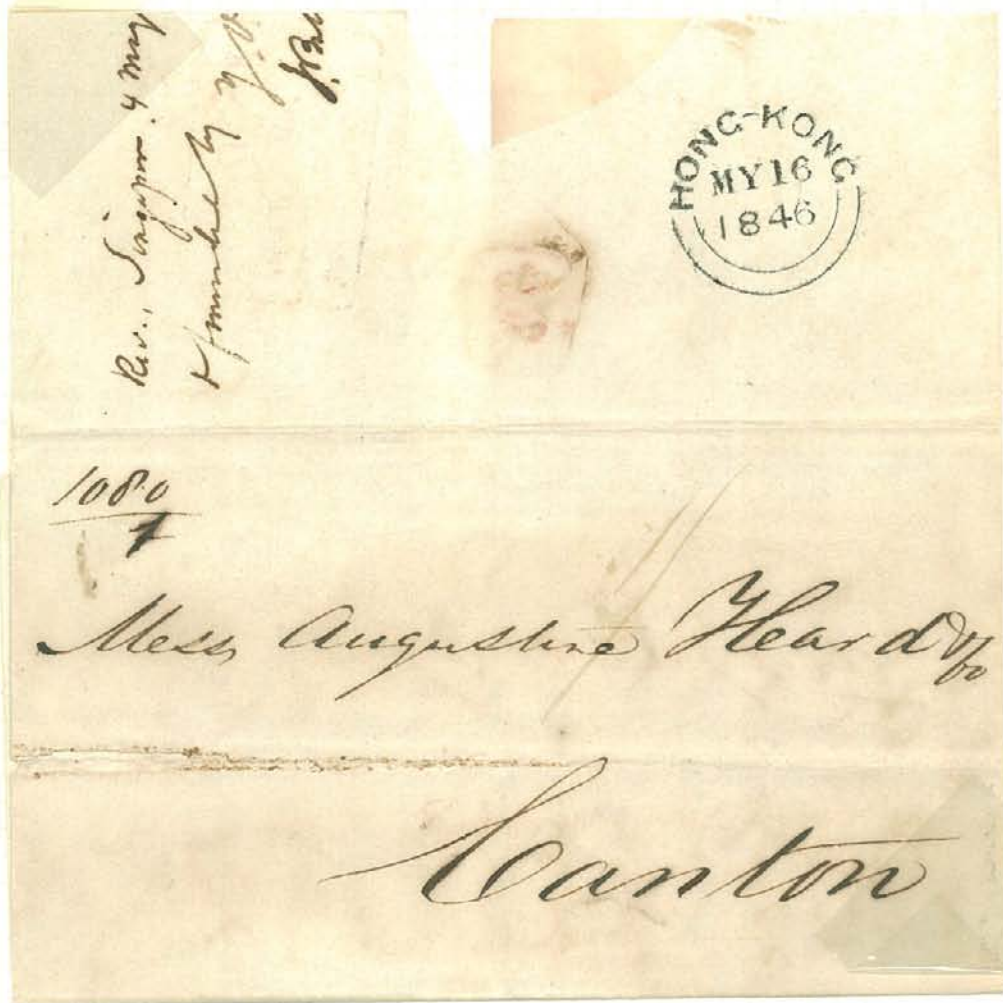 Rec., Singapore. 4 May
& forwarded by y. O.
HONG-KONG
MY 16
1846
1080
1
Mess Augustine Heard & Co
Canton